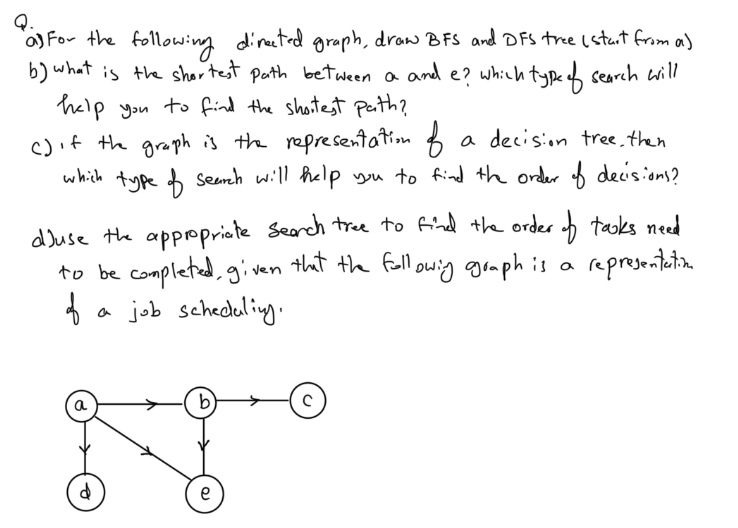 Q.
a) For the following directed graph, draw BFS and DFS tree (start from a)
b) what is the shortest path between a and e? which type of search will
help you to find the shortest path?
c) if the graph is the representation of a decision tree, then
which type of search will help you to find the order of decisions?
d) use the appropriate search tree to find the order of tasks need
to be completed, given that the following graph is a representation
of a job scheduling.
a b c
d e